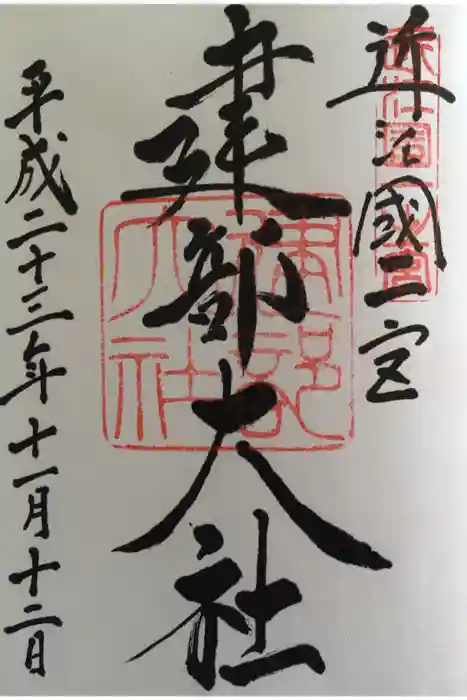 近江國一之宮
近江國一宮
建部大社
建部大社
平成二十三年十一月十二日